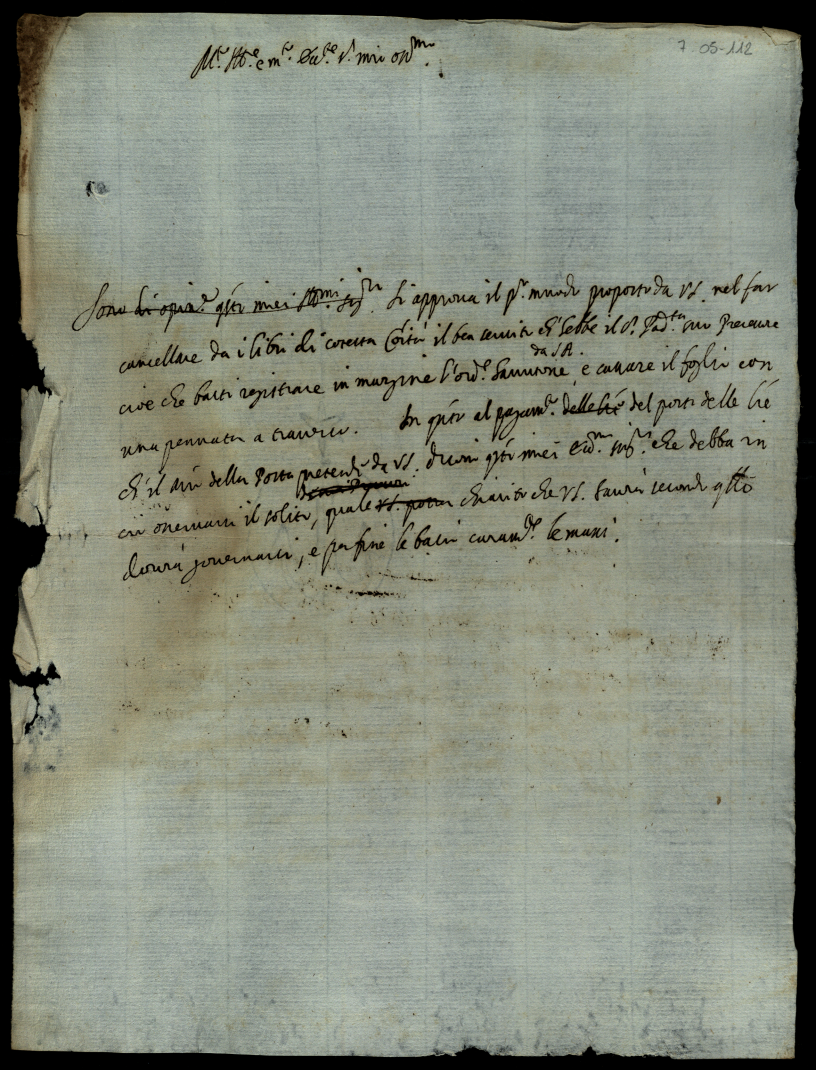 7 05-112
M.to Ill.re e m.to Ecc.te S.r mio oss.mo
Sono di opin.e q'sti miei Ill.mi Sig.ri Si approva il p.o modo proposto da VS. nel far
cancellare da i libri di cotesta Co'ità il ben servito ch'hebbe il S.r
cioè che basti registrare in margine l'ord.e havutone da SA. e cassare il foglio con
una pennata a traverso. In q'sto al pagam.to delle l're del porto delle l're
ch'il m.ro della Posta pretende da VS. dicono q'sti miei Sig.ri che debba in
ciò osservarsi il solito, quale VS. potrà chiarito che VS. havrà secondo q'llo
dovrà governarsi, e per fine le bacio caram.te le mani.